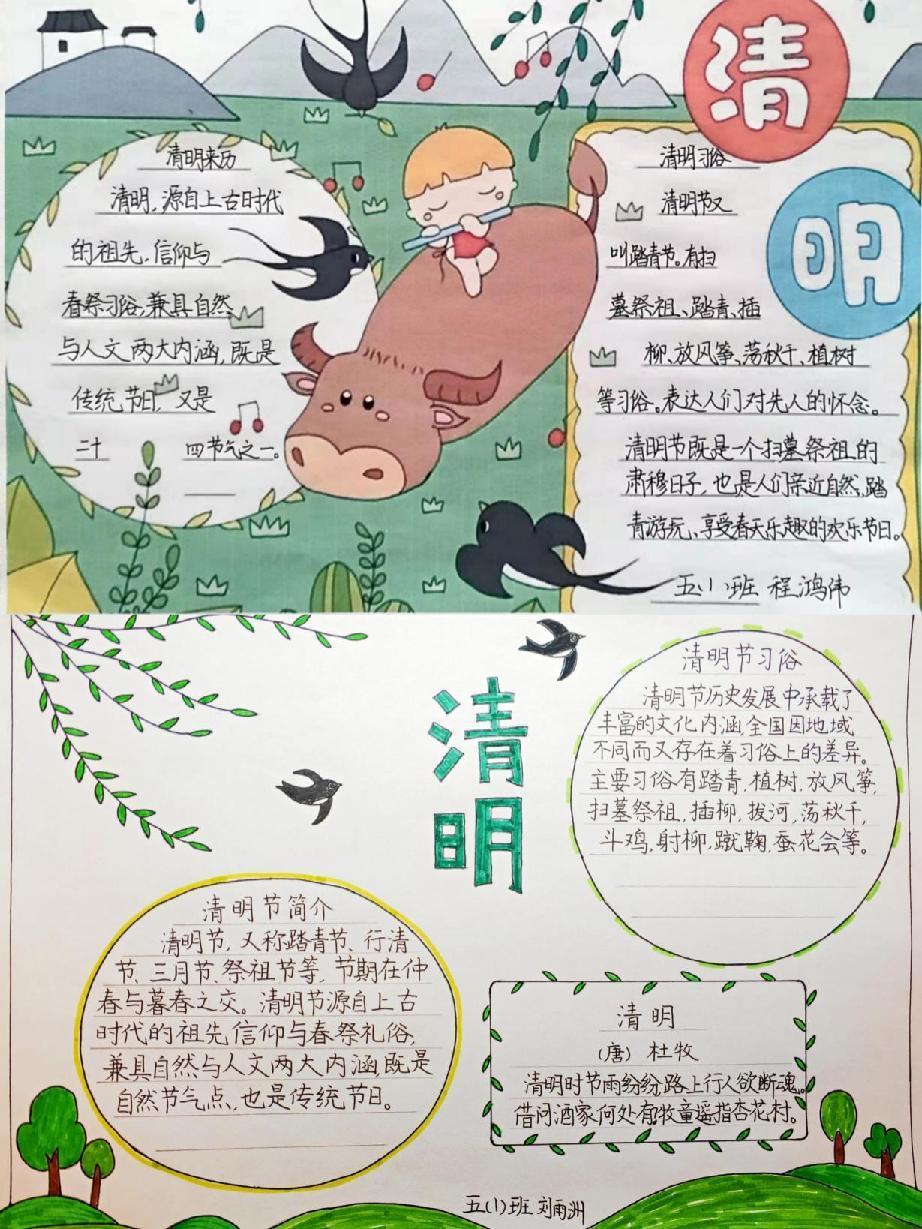 清
明
清明来历
清明,源自上古时代
的祖先,信仰与
春祭习俗,兼具自然
与人文两大内涵,既是
传统节日,又是
二十 四节气之一。
清明习俗
清明节又
叫踏青节。有扫
墓祭祖、踏青、插
柳、放风筝、荡秋千、植树
等习俗。表达人们对先人的怀念。
清明节既是一个扫墓祭祖的
肃穆日子,也是人们亲近自然,踏
青游玩、享受春天乐趣的欢乐节日。
五(1)班 程鸿伟
清
明
清明节习俗
清明节历史发展中承载了
丰富的文化内涵,全国因地域
不同而又存在着习俗上的差异。
主要习俗有踏青,植树,放风筝,
扫墓祭祖,插柳,拔河,荡秋千,
斗鸡,射柳,蹴鞠,蚕花会等。
清明节简介
清明节,又称踏青节、行清
节、三月节、祭祖节等,节期在仲
春与暮春之交。清明节源自上古
时代的祖先信仰与春祭礼俗,
兼具自然与人文两大内涵,既是
自然节气点,也是传统节日。
清明
(唐) 杜牧
清明时节雨纷纷,路上行人欲断魂。
借问酒家何处有,牧童遥指杏花村。
五(1)班 刘雨洲